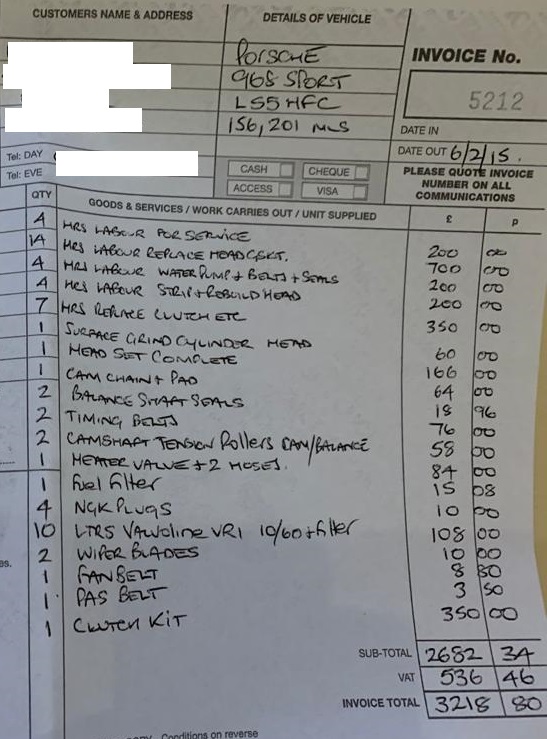 CUSTOMERS NAME & ADDRESS
DETAILS OF VEHICLE
PORSCHE
968 SPORT
L55 HFC
156,201 MLS
INVOICE No.
5212
DATE IN
DATE OUT 6/2/15.
Tel: DAY
Tel: EVE
CASH CHEQUE
ACCESS VISA
PLEASE QUOTE INVOICE
NUMBER ON ALL
COMMUNICATIONS
QTY GOODS & SERVICES / WORK CARRIES OUT / UNIT SUPPLIED £ P
4 HRS LABOUR FOR SERVICE 200 00
14 HRS LABOUR REPLACE HEAD GSKT. 700 00
4 HRS LABOUR WATER PUMP + BELTS + SEALS 200 00
4 HRS LABOUR STRIP + REBUILD HEAD 200 00
7 HRS REPLACE CLUTCH ETC 350 00
1 SURFACE GRIND CYLINDER HEAD 60 00
1 HEAD SET COMPLETE 166 00
1 CAM CHAIN + PAD 64 00
2 BALANCE SHAFT SEALS 18 96
2 TIMING BELTS 76 00
2 CAMSHAFT TENSION Rollers CAM/BALANCE 58 00
1 HEATER VALVE + 2 HOSES. 84 00
1 Fuel Filter 15 08
4 NGK PLUGS 10 00
10 LTRS Valvoline VR1 10/60 + filter 108 00
2 WIPER BLADES 10 00
1 FAN BELT 8 80
1 PAS BELT 3 50
1 CLUTCH KIT 350 00
SUB-TOTAL 2682 34
VAT 536 46
INVOICE TOTAL 3218 80
Conditions on reverse